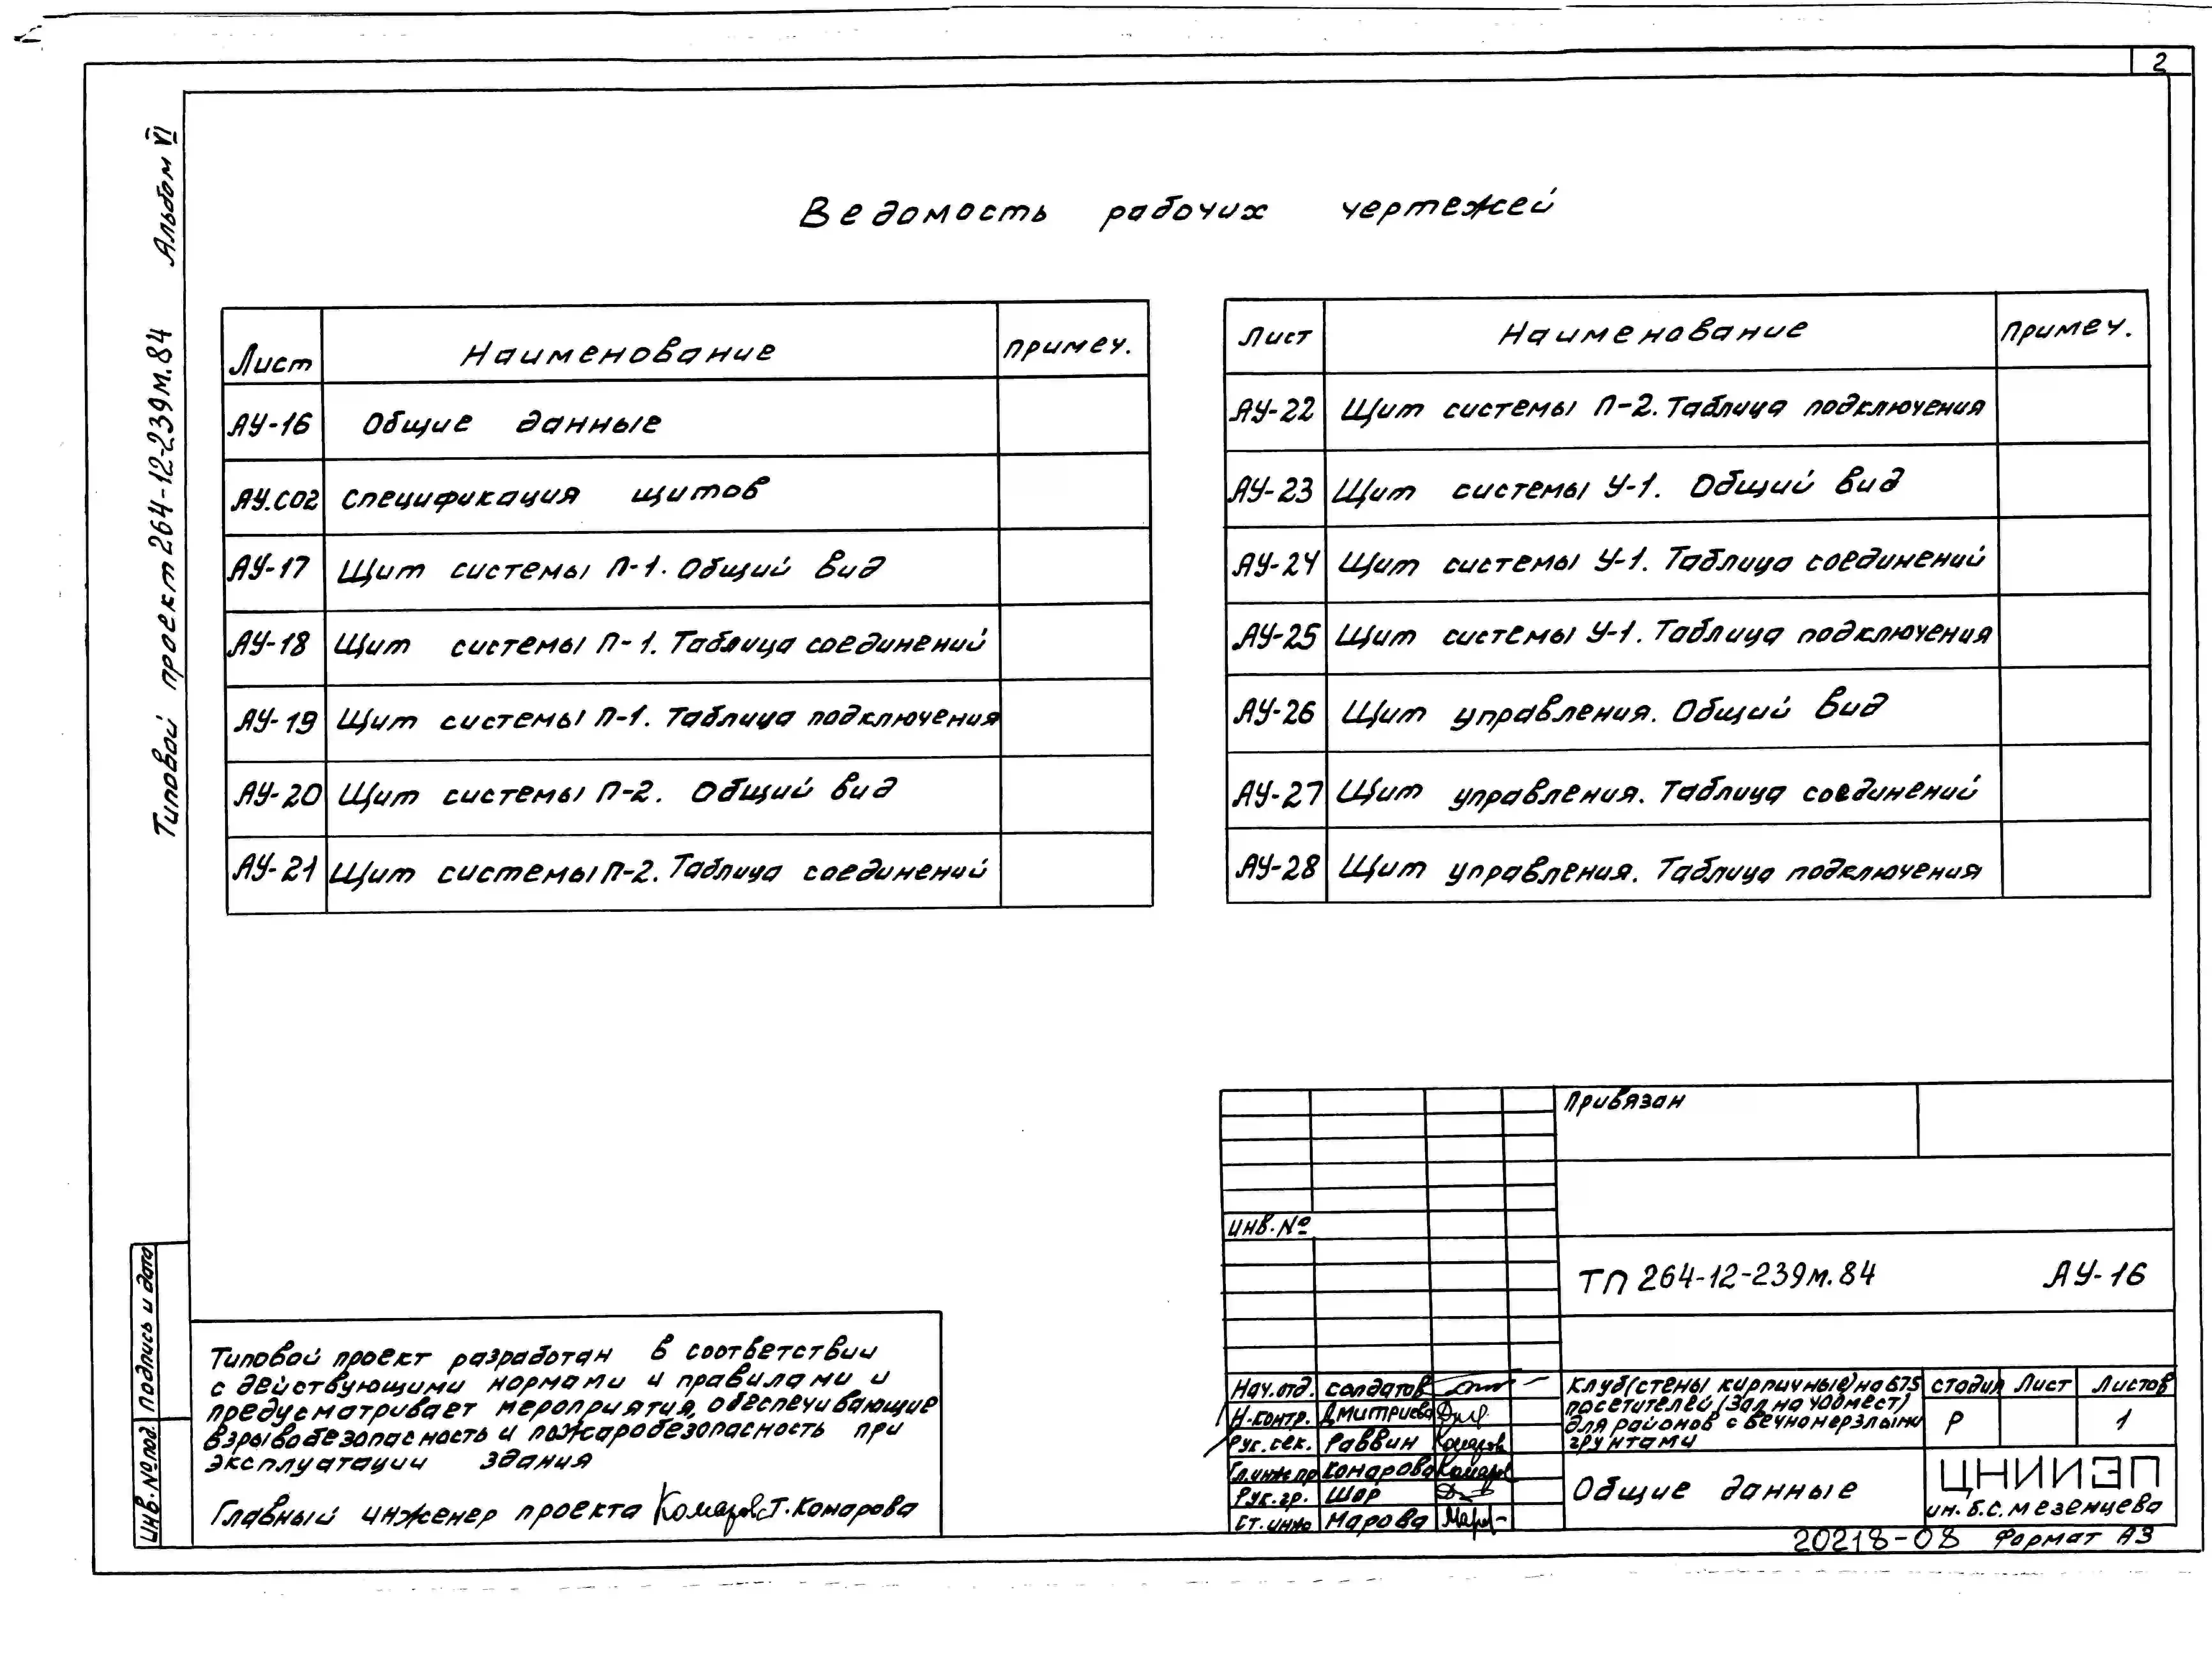 2
Типовой проект 264-12-239м.84 Альбом VI
Ведомость рабочих чертежей
Лист Наименование Примеч.
АУ-16 Общие данные
АУ.СО2 Спецификация щитов
АУ-17 Щит системы П-1. Общий вид
АУ-18 Щит системы П-1. Таблица соединений
АУ-19 Щит системы П-1. Таблица подключения
АУ-20 Щит системы П-2. Общий вид
АУ-21 Щит системы П-2. Таблица соединений
Лист Наименование Примеч.
АУ-22 Щит системы П-2. Таблица подключения
АУ-23 Щит системы У-1. Общий вид
АУ-24 Щит системы У-1. Таблица соединений
АУ-25 Щит системы У-1. Таблица подключения
АУ-26 Щит управления. Общий вид
АУ-27 Щит управления. Таблица соединений
АУ-28 Щит управления. Таблица подключения
Инв.№под. Подпись и дата
Типовой проект разработан в соответствии
с действующими нормами и правилами и
предусматривает мероприятия, обеспечивающие
взрывобезопасность и пожаробезопасность при
эксплуатации здания
Главный инженер проекта Т. Комарова
Привязан
Инв.№
ТП 264-12-239м.84 АУ-16
Нач.отд. Солдатов
Н.контр. Дмитриева
Рук.сек. Раввин
Гл.инж.пр Комарова
Рук.гр. Шор
Ст.инж Марова
Клуб (стены кирпичные) на 675
посетителей (зал на 400 мест)
для районов с вечномерзлыми
грунтами
Стадия Лист Листов
Р 1
Общие данные
ЦНИИЭП
им. Б.С. Мезенцева
20218-08 Формат А3